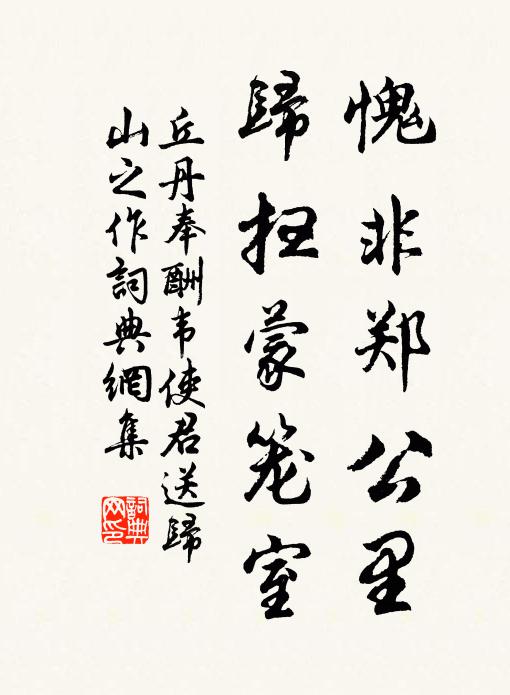 愧非郑公里
歸扫蒙笼室
丘丹奉酬韦使君送歸
山之作詞典網集
詞典網印